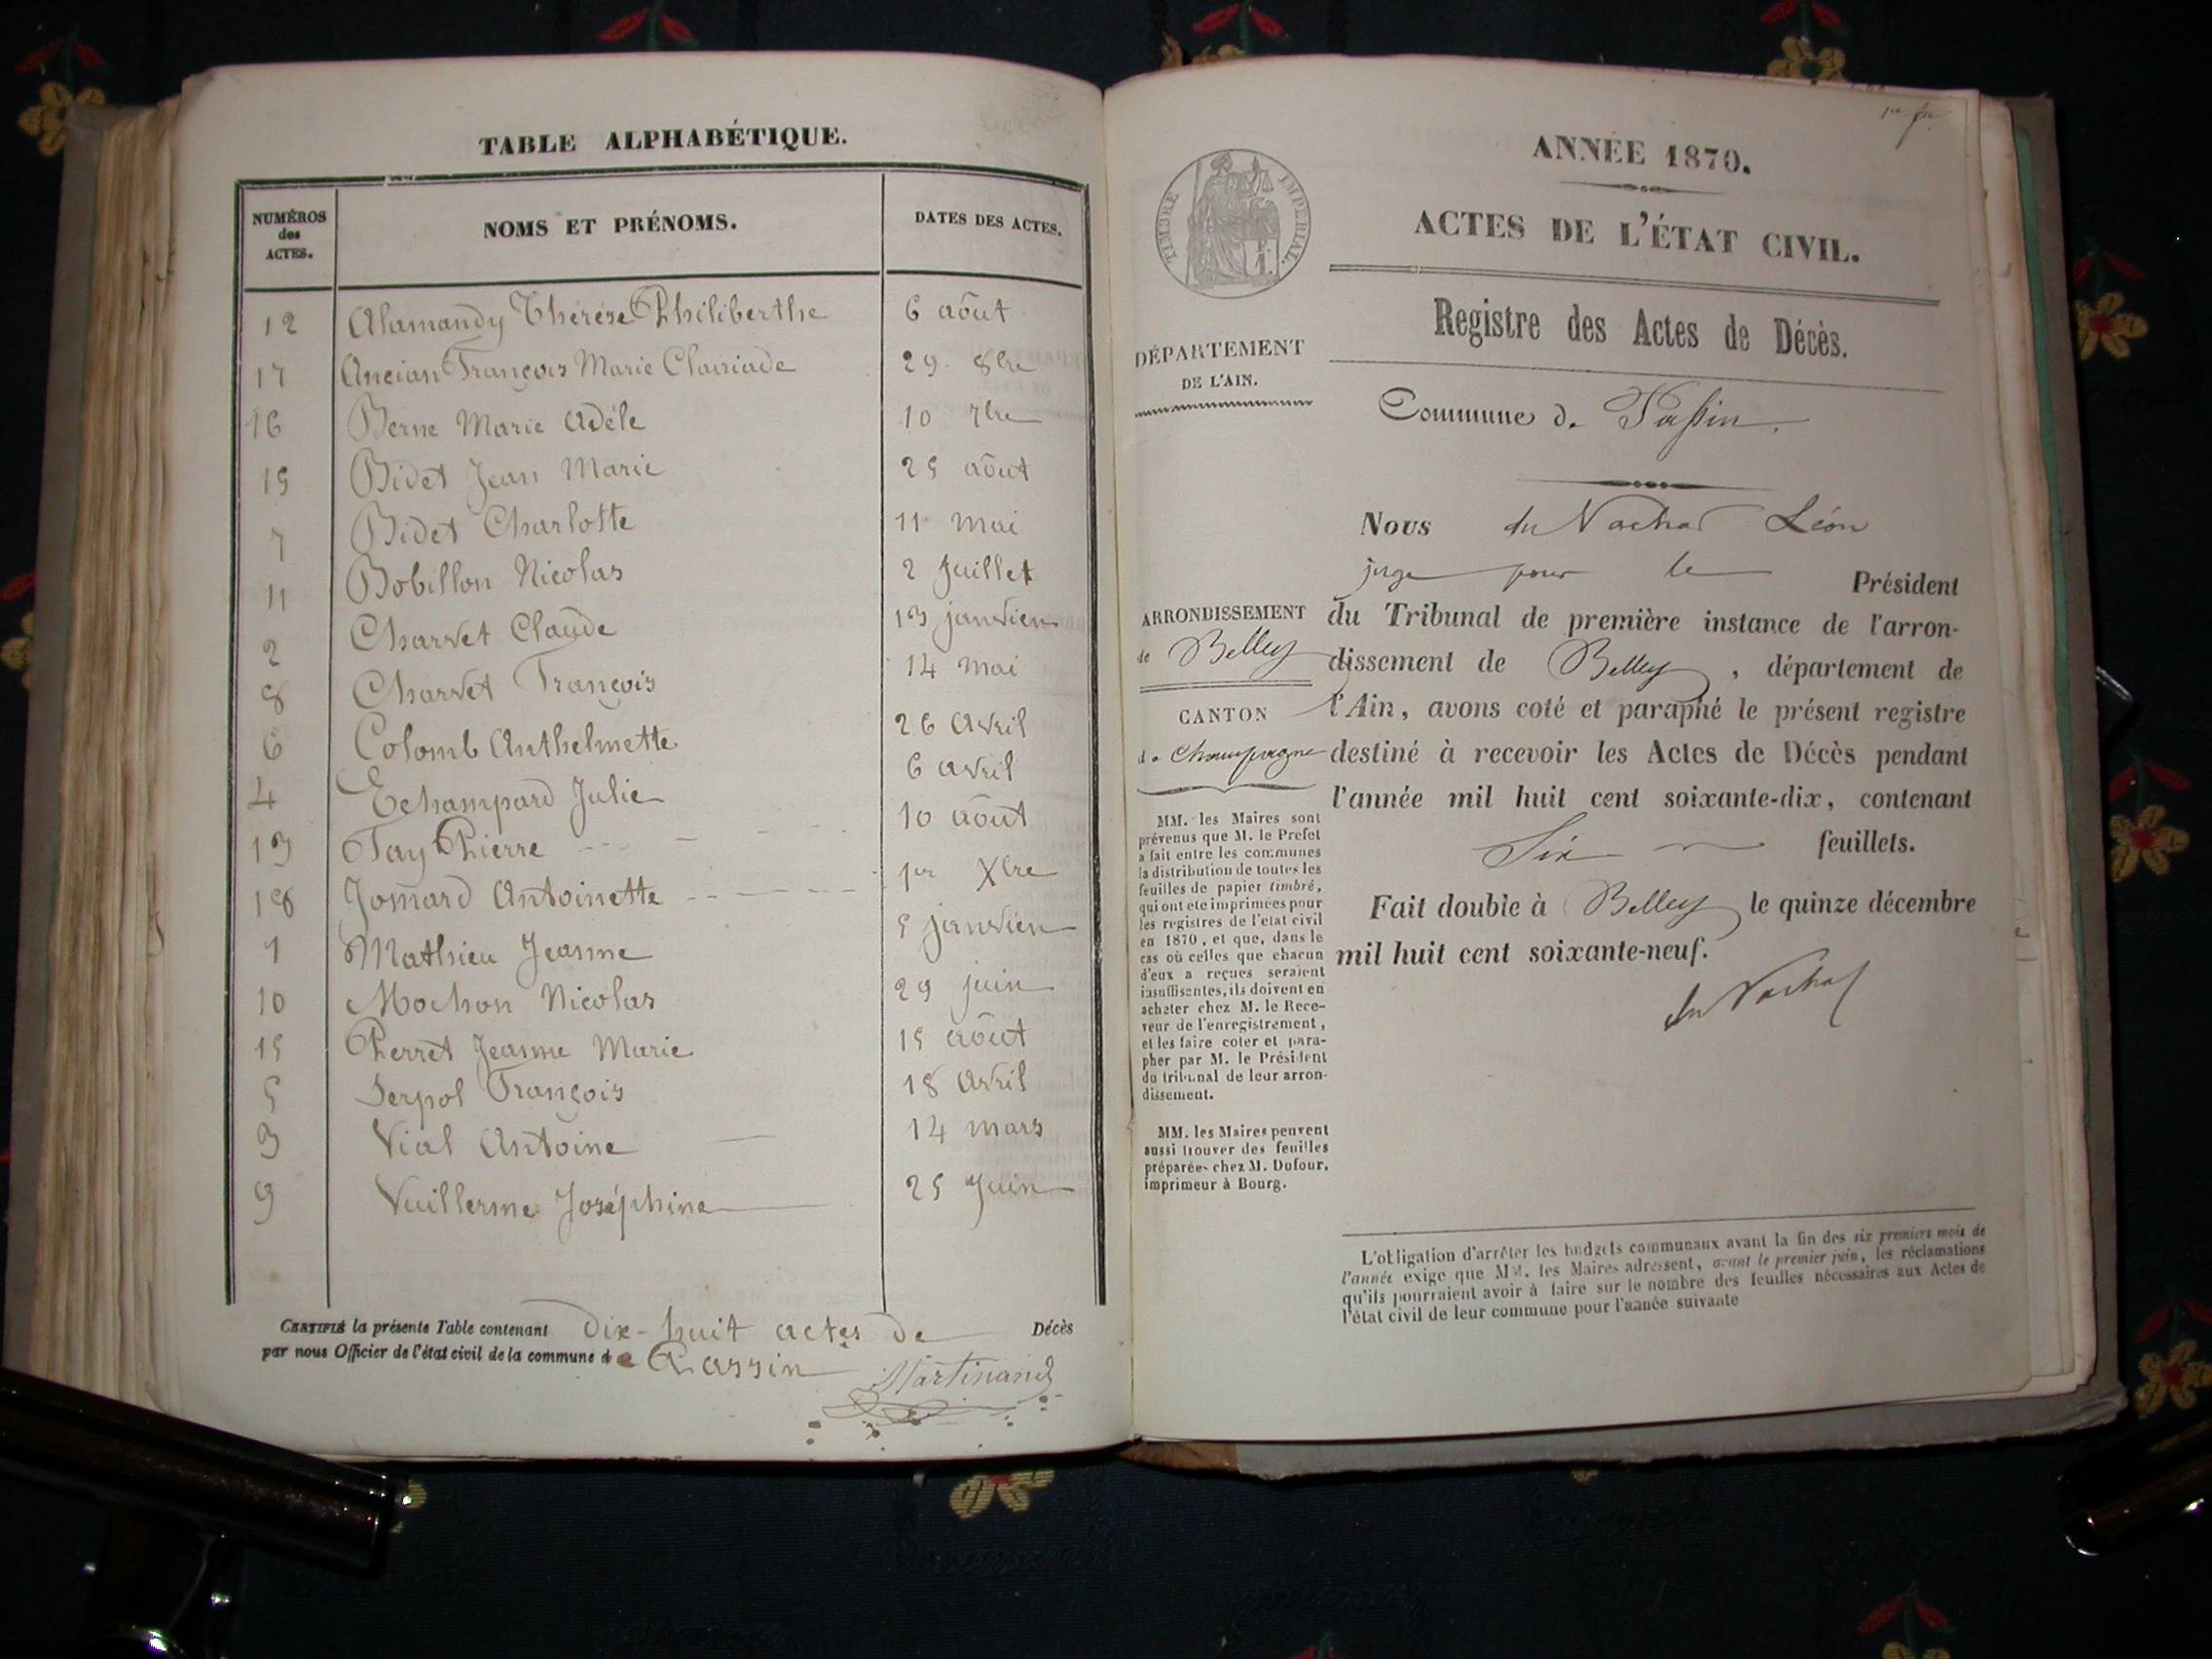 TABLE ALPHABÉTIQUE.
NUMÉROS
des
ACTES.
NOMS ET PRÉNOMS.
DATES DES ACTES.
12 Alamandy Thérèse Philiberthe 6 août
17 Ancian François Marie 29 8bre
16 Berne Marie Adèle 10 7bre
15 Bidet Jean Marie 25 août
7 Bidet Charlotte 11 mai
11 Bobillon Nicolas 2 Juillet
2 Charvet Claude 13 janvier
8 Charvet François 14 mai
6 Colomb Anthelmette 26 avril
4 Echampard Julie 6 avril
13 Fay Pierre 10 août
18 Jomard Antoinette 1er Xbre
1 Mathieu Jeanne 5 janvier
10 Mochon Nicolas 29 juin
15 Perret Jeanne Marie 15 août
5 Serpol François 18 avril
3 Vial Antoine 14 mars
9 Vuillerme Joséphine 25 Juin
CERTIFIÉ la présente Table contenant dix-huit actes de Décès
par nous Officier de l'état civil de la commune de Passin
Martinand
ANNÉE 1870.
ACTES DE L'ÉTAT CIVIL.
TIMBRE IMPÉRIAL.
Registre des Actes de Décès.
DÉPARTEMENT
DE L'AIN.
Commune de Passin.
Nous du Nachat Léon
juge pour le Président
du Tribunal de première instance de l'arron-
dissement de Belley, département de
l'Ain, avons coté et paraphé le présent registre
destiné à recevoir les Actes de Décès pendant
l'année mil huit cent soixante-dix, contenant
Six feuillets.
Fait double à Belley le quinze décembre
mil huit cent soixante-neuf.
du Nachat
ARRONDISSEMENT
de Belley
CANTON
de Champagne
MM. les Maires sont
prévenus que M. le Préfet
a fait entre les communes
la distribution de toutes les
feuilles de papier timbré,
qui ont été imprimées pour
les registres de l'état civil
en 1870, et que, dans le
cas où celles que chacun
d'eux a reçues seraient
insuffisantes, ils doivent en
acheter chez M. le Rece-
veur de l'enregistrement,
et les faire coter et para-
pher par M. le Président
du tribunal de leur arron-
dissement.
MM. les Maires peuvent
aussi trouver des feuilles
préparées chez M. Dufour,
imprimeur à Bourg.
L'obligation d'arrêter les budgets communaux avant la fin des six premiers mois de
l'année exige que MM. les Maires adressent, avant le premier juin, les réclamations
qu'ils pourraient avoir à faire sur le nombre des feuilles nécessaires aux Actes de
l'état civil de leur commune pour l'année suivante